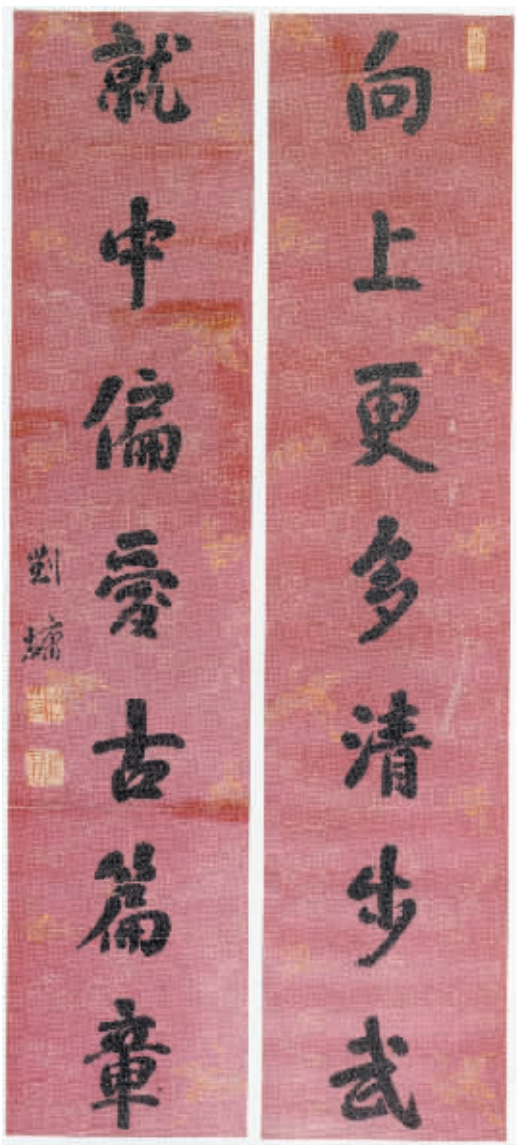 向上更多清步武
就中偏愛古篇章
劉墉